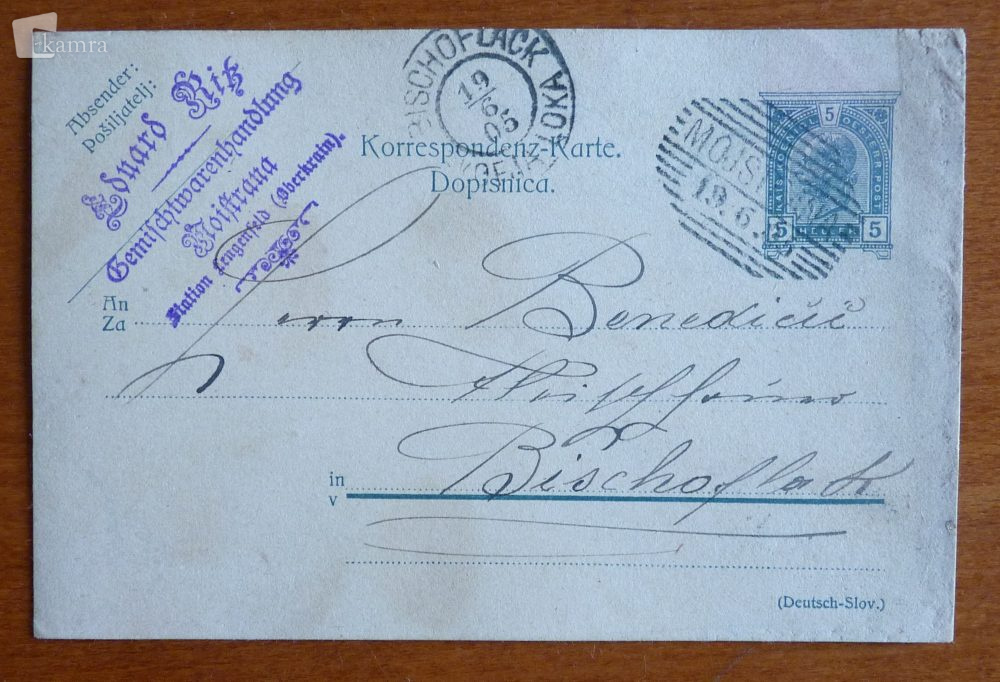 kamra
Absender:
Pošiljatelj:
Eduard Rik
Gemischtwarenhandlung
Moistrana
Station Lengenfeld (Oberkrain).
BISCHOFLACK
19/6 05
LOKA
MOJS
19.6
KAIS. KOENIGL. OESTERR. POST
5
5 HELLER 5
Korrespondenz-Karte.
Dopisnica.
An
Za
Herrn Benedičič
Bischoflack
in
v
(Deutsch-Slov.)